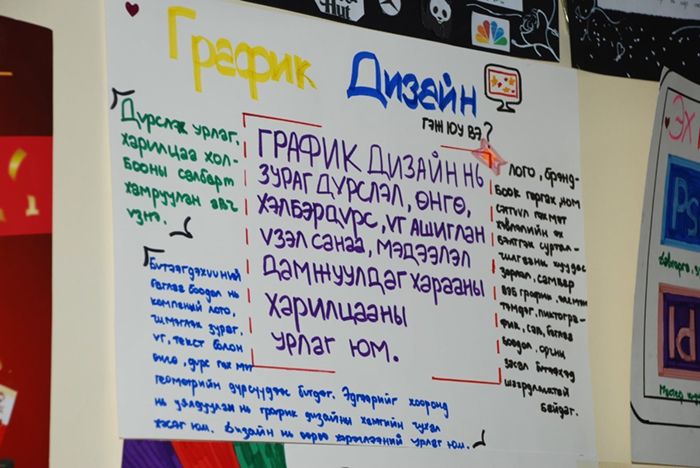 Hut
График Дизайн
гэж юу вэ?
Дүрслэх урлаг,
харилцаа хол-
бооны салбарт
хамруулан авч
үзнэ.
ГРАФИК ДИЗАЙН НЬ
ЗУРАГ ДҮРСЛЭЛ, ӨНГӨ,
ХЭЛБЭР ДҮРС, ҮГ АШИГЛАН
ҮЗЭЛ САНАА, МЭДЭЭЛЭЛ
ДАМЖУУЛДАГ ХАРААНЫ
ХАРИЛЦААНЫ
УРЛАГ ЮМ.
Лого, брэнд-
бүүк гаргах, ном
сэтгүүл гэх мэт
хэвлэлийн эх
бэлтгэх, суртал-
чилгааны хуудас
зурмал, самбар
вэб график
фик, сав, баглаа
боодол, орчны
байдаг.
Бүтээгдэхүүний
баглаа боодол нь
компаний лого,
чимэглэх зураг,
үг, текст болон
өнгө, дүрс гэх мэт
геометрийн дүрсүүдээс бүтдэг. Эдгээрийг хооронд
нь уялдуулах нь график дизайны хамгийн чухал
хэсэг юм. Дизайн нь өөрөө харилцааний урлаг юм.
ЭХ
Ps
Id